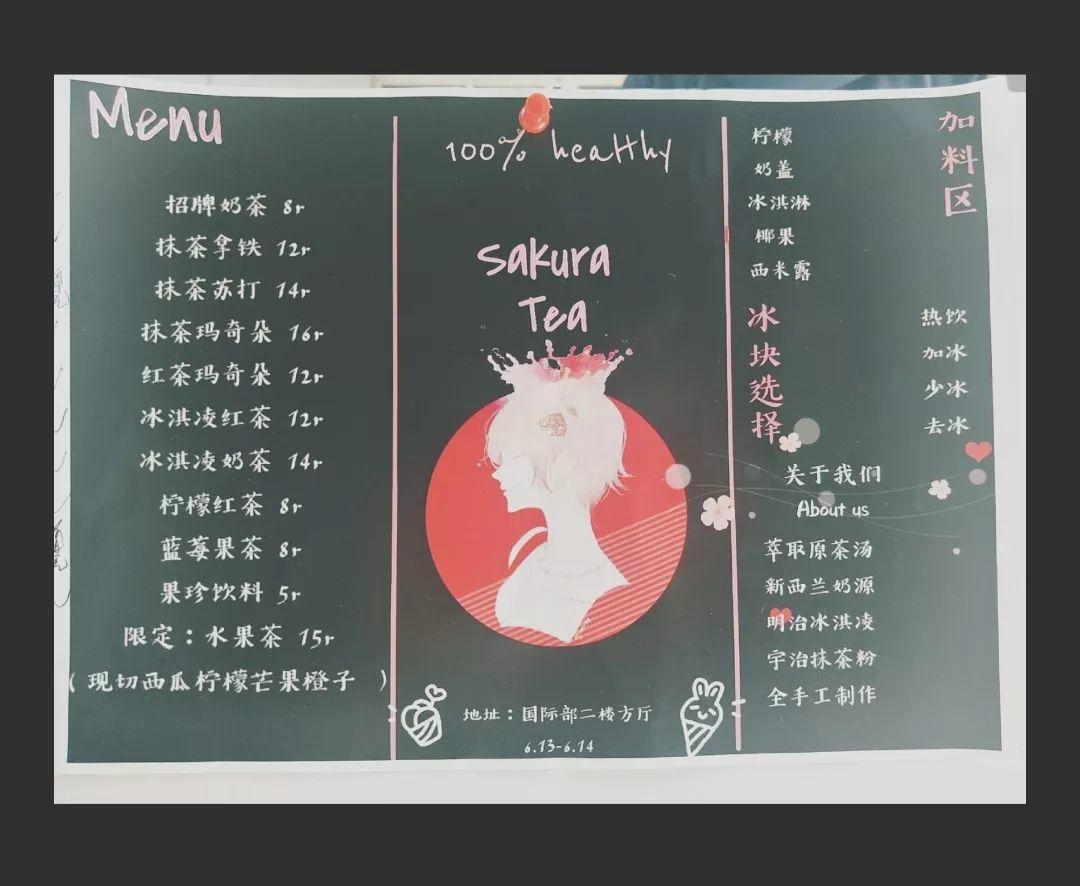 Menu
招牌奶茶 8r
抹茶拿铁 12r
抹茶苏打 14r
抹茶玛奇朵 16r
红茶玛奇朵 12r
冰淇凌红茶 12r
冰淇凌奶茶 14r
柠檬红茶 8r
蓝莓果茶 8r
果珍饮料 5r
限定：水果茶 15r
（现切西瓜柠檬芒果橙子 ）
100% healthy
Sakura
Tea
地址：国际部二楼方厅
6.13-6.14
加料区
柠檬
奶盖
冰淇淋
椰果
西米露
冰块选择
热饮
加冰
少冰
去冰
关于我们
About us
萃取原茶汤
新西兰奶源
明治冰淇凌
宇治抹茶粉
全手工制作